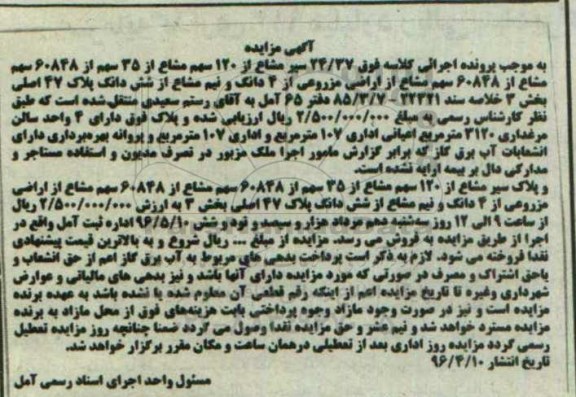 آگهی مزایده
به موجب پرونده اجرائی کلاسه فوق ۲۴/۳۷ سیر مشاع از ۱۲۰ سهم مشاع از ۳۵ سهم از ۶۰۸۴۸ سهم
مشاع از ۶۰۸۴۸ سهم مشاع از اراضی مزروعی از ۴ دانگ و نیم مشاع از شش دانگ پلاک ۴۷ اصلی
بخش ۳ خلاصه سند ۲۲۳۲۱ - ۸۵/۳/۷ دفتر ۶۵ آمل به آقای رستم سعیدی منتقل شده است که طبق
نظر کارشناس رسمی به مبلغ ۲/۵۰۰/۰۰۰/۰۰۰ ریال ارزیابی شده و پلاک فوق دارای ۴ واحد سالن
مرغداری ۳۱۲۰ مترمربع اعیانی اداری ۱۰۷ مترمربع و اداری ۱۰۷ مترمربع و پروانه بهره‌برداری دارای
انشعابات آب برق گاز که برابر گزارش مامور اجرا ملک مزبور در تصرف مدیون و استفاده مستاجر و
مدارکی دال بر بیمه ارایه نشده است.
و پلاک سیر مشاع از ۱۲۰ سهم مشاع از ۳۵ سهم از ۶۰۸۴۸ سهم مشاع از ۶۰۸۴۸ سهم مشاع از اراضی
مزروعی از ۴ دانگ و نیم مشاع از شش دانگ پلاک ۴۷ اصلی بخش ۳ به ارزش ۲/۵۰۰/۰۰۰/۰۰۰ ریال
از ساعت ۹ الی ۱۲ روز سه‌شنبه دهم مرداد هزار و سیصد و نود و شش ۹۶/۵/۱۰ اداره ثبت آمل واقع در
اجرا از طریق مزایده به فروش می رسد. مزایده از مبلغ ... ریال شروع و به بالاترین قیمت پیشنهادی
نقدا فروخته می شود. لازم به ذکر است پرداخت بدهی های مربوط به آب برق گاز اعم از حق انشعاب و
یاحق اشتراک و مصرف در صورتی که مورد مزایده دارای آنها باشد و نیز بدهی های مالیاتی و عوارض
شهرداری وغیره تا تاریخ مزایده اعم از اینکه رقم قطعی آن معلوم شده یا نشده باشد به عهده برنده
مزایده است و نیز در صورت وجود مازاد وجوه پرداختی بابت هزینه‌های فوق از محل مازاد به برنده
مزایده مسترد خواهد شد و نیم عشر و حق مزایده نقدا وصول می گردد ضمنا چنانچه روز مزایده تعطیل
رسمی گردد مزایده روز اداری بعد از تعطیلی درهمان ساعت و مکان مقرر برگزار خواهد شد.
تاریخ انتشار ۹۶/۴/۱۰
مسئول واحد اجرای اسناد رسمی آمل